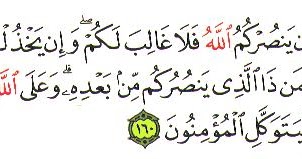 ن يَنصُرْكُمُ ٱللَّهُ فَلَا غَالِبَ لَكُمْ ۖ وَإِن يَخْذُلْ
مَن ذَا ٱلَّذِى يَنصُرُكُم مِّنۢ بَعْدِهِۦ ۗ وَعَلَى ٱللَّ
يَتَوَكَّلِ ٱلْمُؤْمِنُونَ ١٦٠